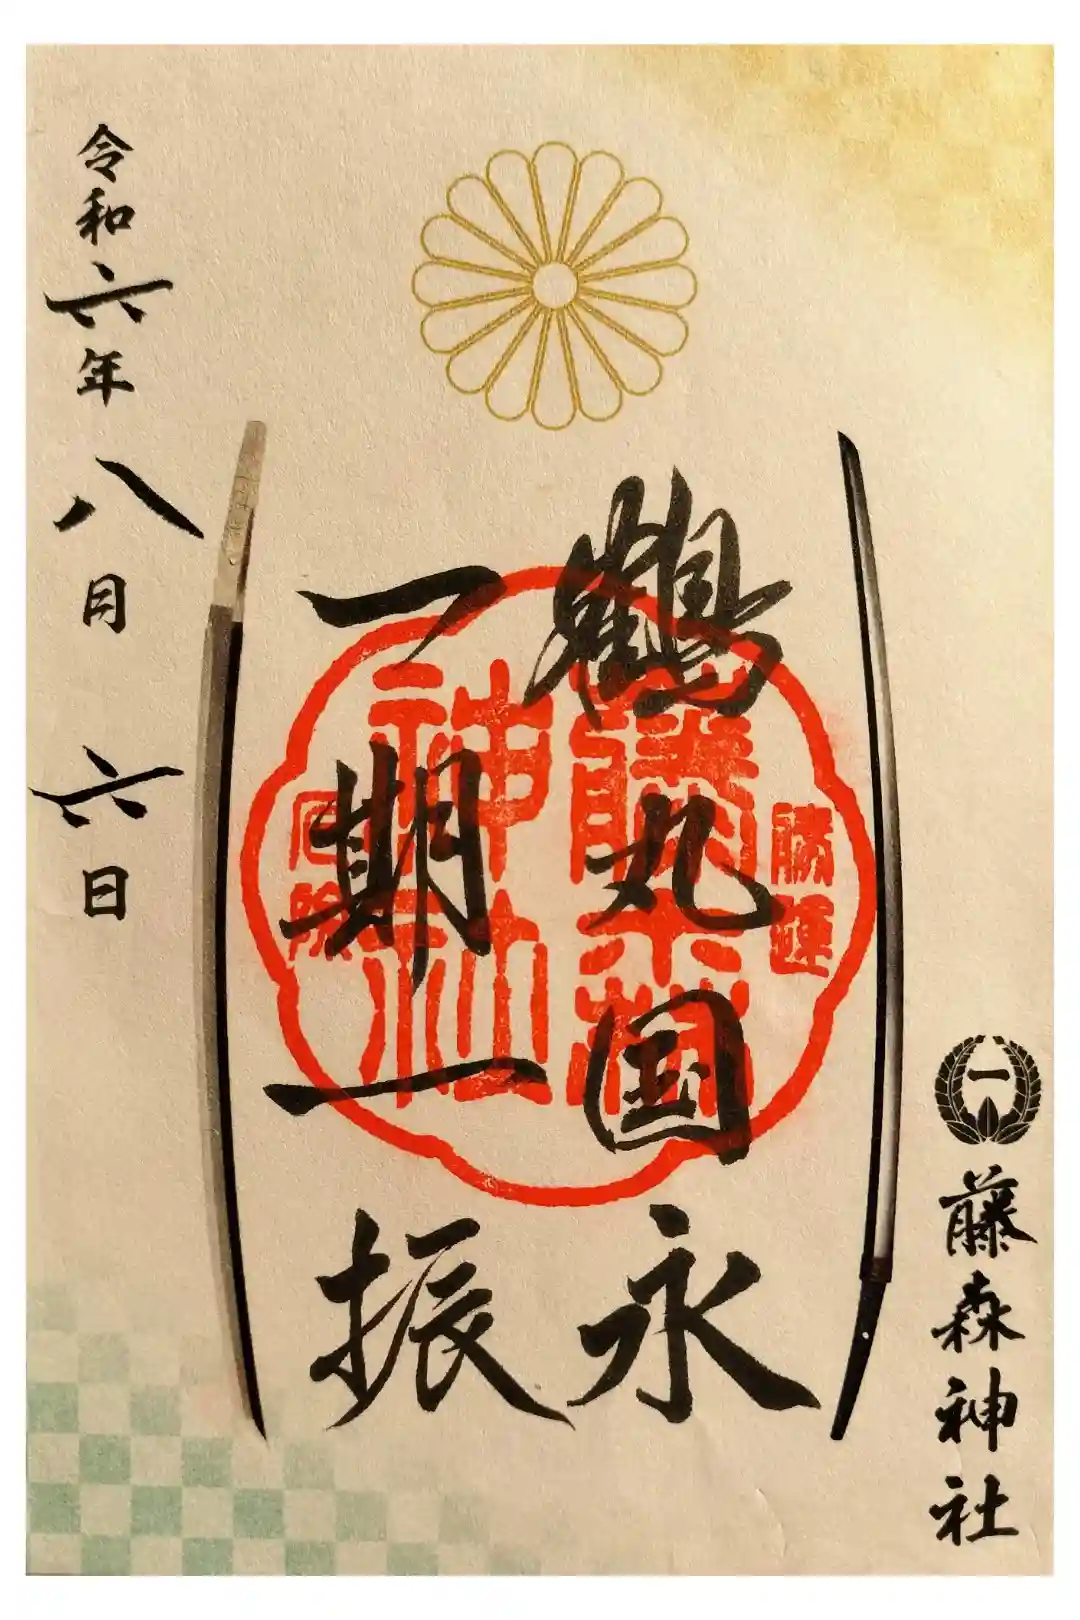 藤森神社
鶴丸国永
一期一振
勝運
藤森
神社
厄除
令和六年八月六日